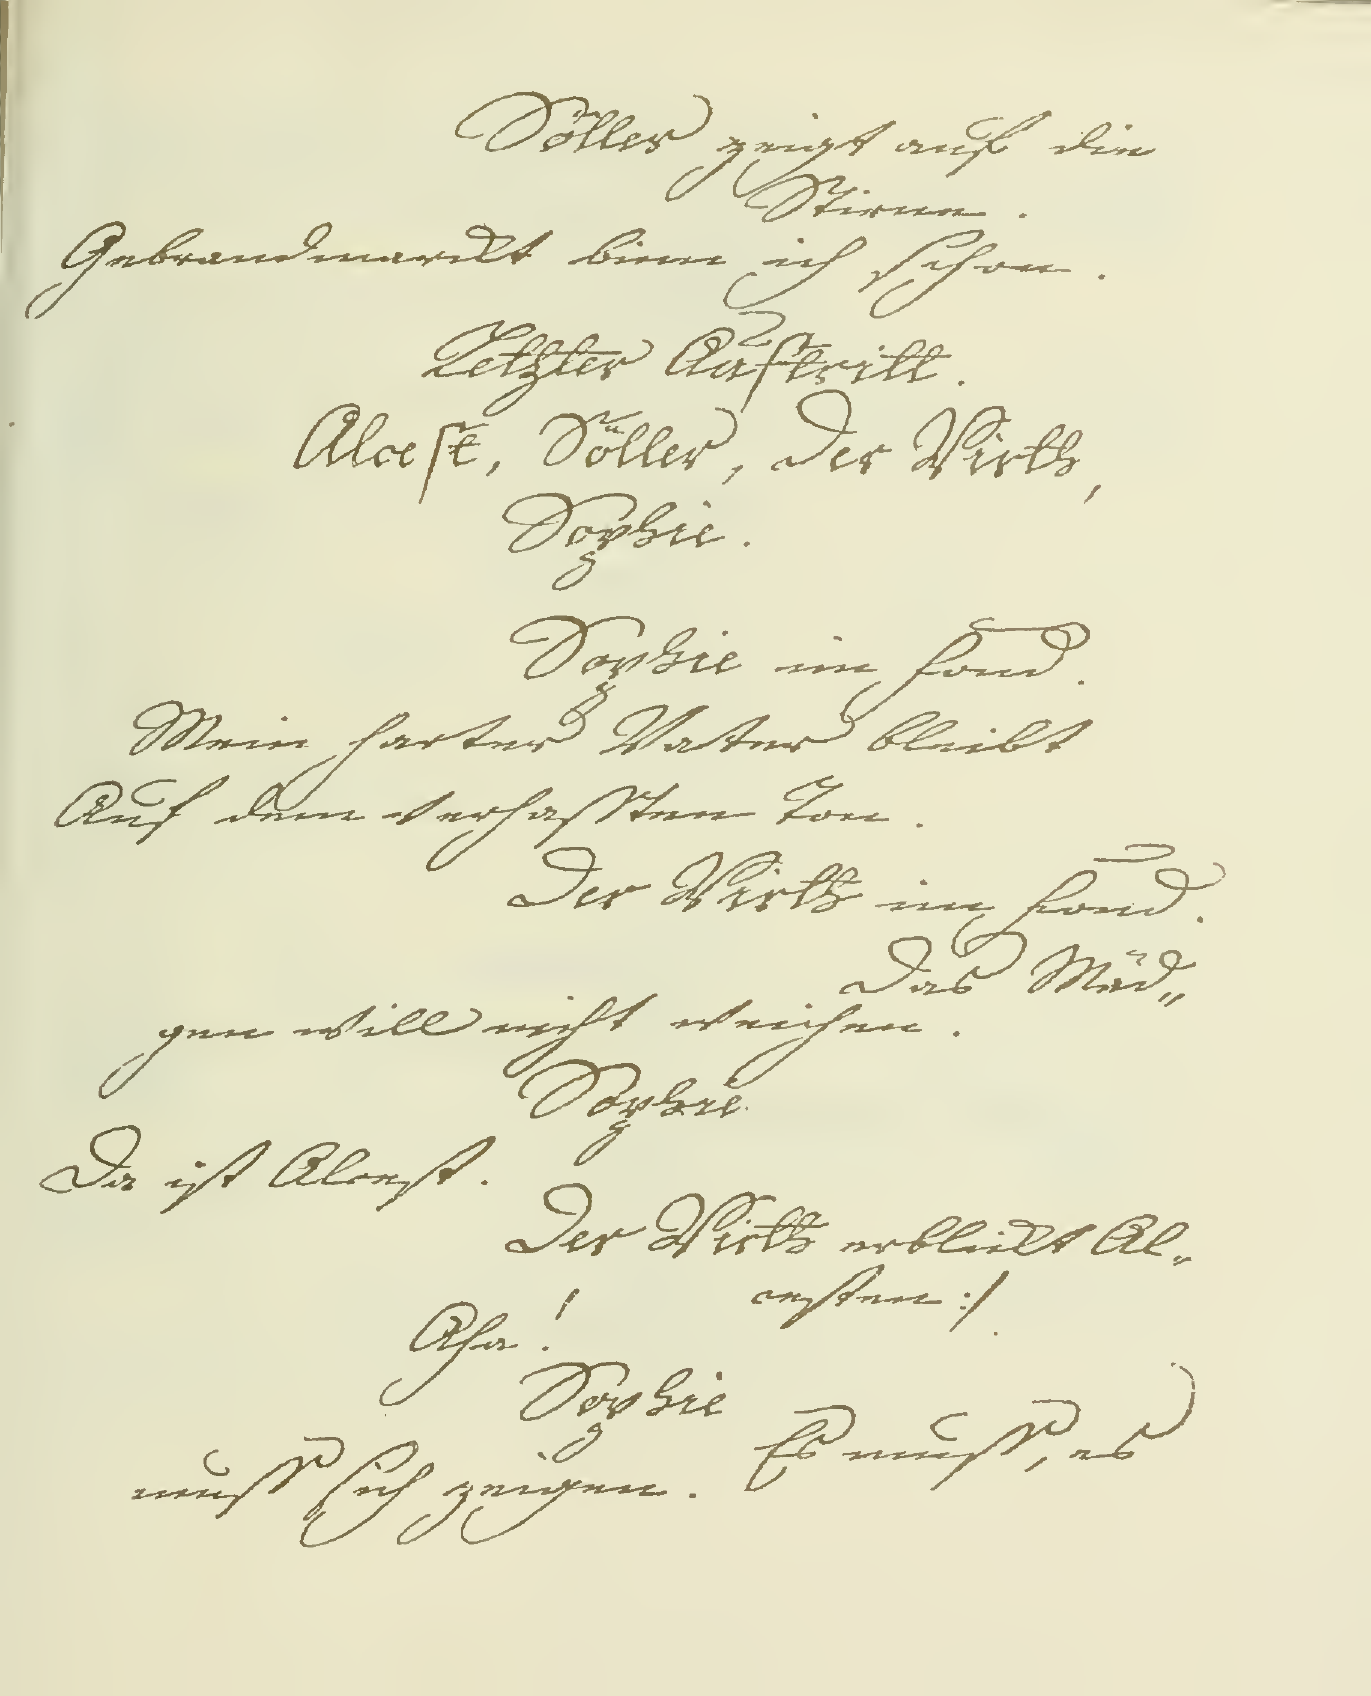 Söller zeigt auf die
Stirne.
Gebrandmarckt binn ich schon.
Letzter Auftritt.
Alcest, Söller, der Wirth,
Sophie.
Sophie im fond.
Mein harter Vater bleibt
Auf dem verhassten Ton.
Der Wirth im fond.
Das Mäd„
gen will nicht weichen.
Sophie.
Da ist Alcest.
Der Wirth erblickt Al„
cesten :/
Aha!
Sophie
Es muss, es
muss sich zeigen.